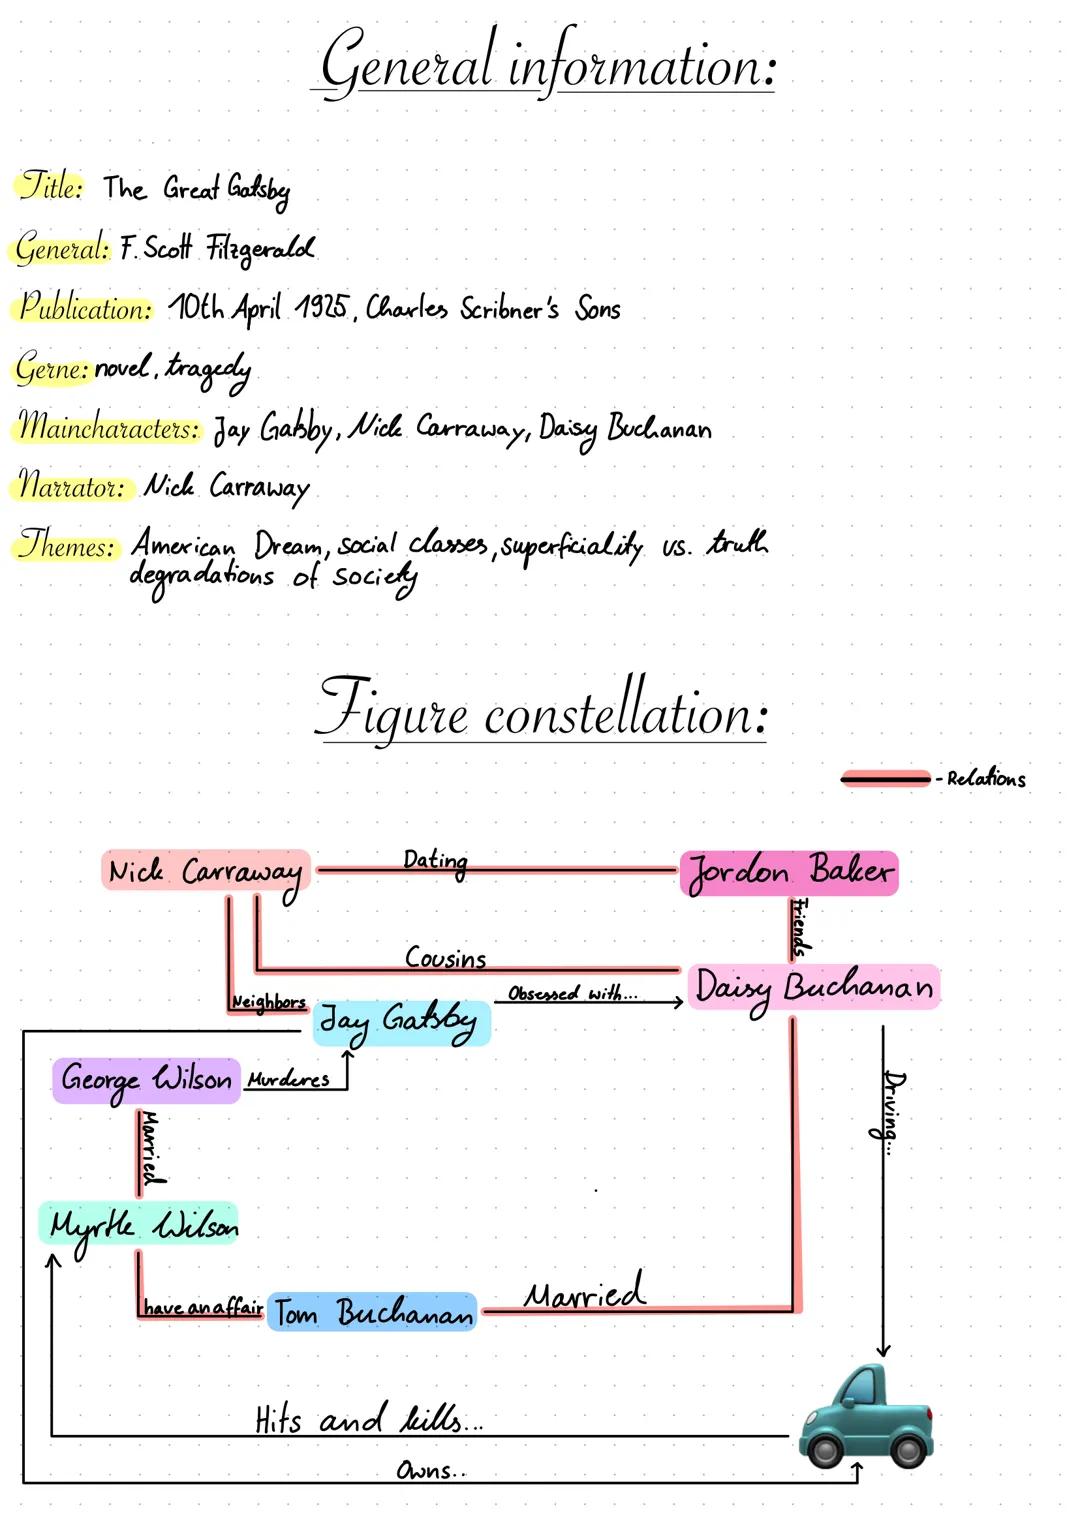 General information:
Title: The Great Gatsby
General: F. Scott Fitzgerald
Publication: 10th April 1925, Charles Scribner's Sons
Gerne: novel, tragedy
Maincharacters: Jay Gatsby, Nick Carraway, Daisy Buchanan
Narrator: Nick Carraway
Themes: American Dream, social classes, superficiality vs. truth
degradations of society
Figure constellation:
- Relations
Nick Carraway
Dating
Jordon Baker
Friends
Cousins
Daisy Buchanan
Neighbors
Obsessed with...
Jay Gatsby
George Wilson
Murderes
Driving...
Married
Myrtle Wilson
have an affair
Tom Buchanan
Married
Hits and kills...
Owns..